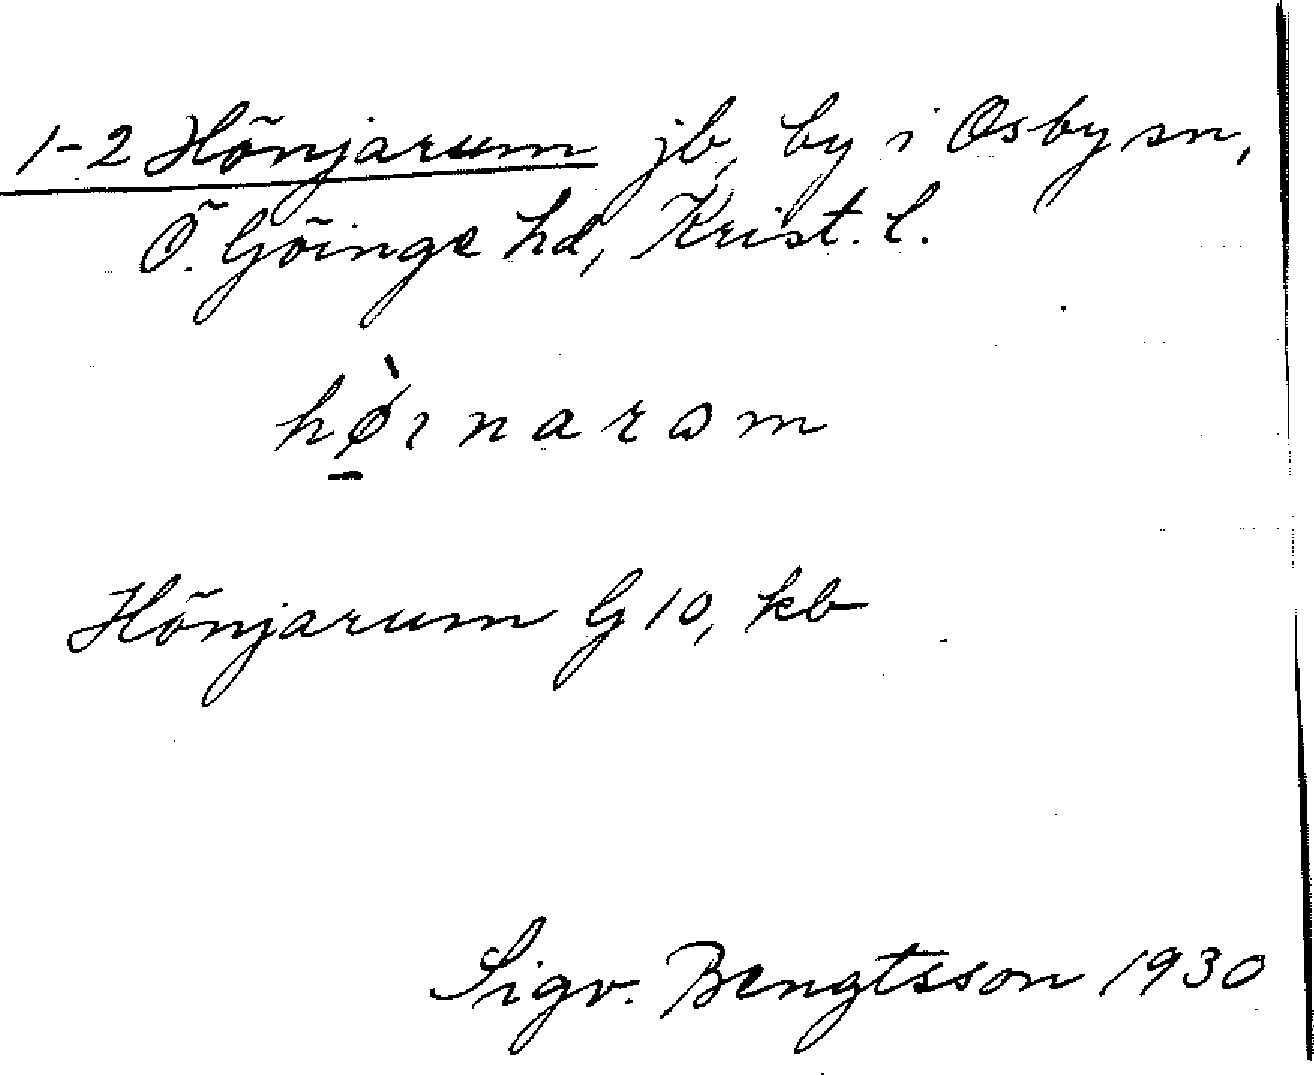 1-2 Hönjarum jb, by i Osby sn,
Ö. Göinge hd, Krist. l.
hø̀ınarɷm
Hönjarum G 10, kb
Sigv. Bengtsson 1930